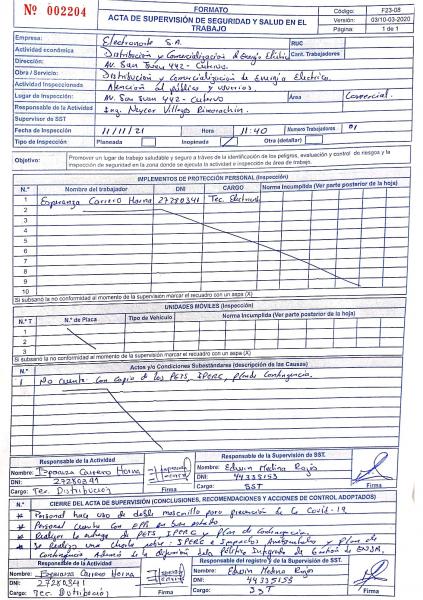 Nº 002204
FORMATO
ACTA DE SUPERVISIÓN DE SEGURIDAD Y SALUD EN EL TRABAJO
Código: F23-08
Versión: 03/10-03-2020
Página: 1 de 1
Empresa: Electronorte S.A. RUC
Actividad económica Distribución y Comercialización de Energía Eléctric Cant. Trabajadores
Dirección: AV. San Juan 442 - Cutervo
Obra / Servicio: Distribución y Comercialización de Energía Electrica.
Actividad Inspeccionada Atención al público y usuarios.
Lugar de Inspección: AV. San Juan 442 - Cutervo Área Comercial.
Responsable de la Actividad Ing. Neycer Villegas Rimarachin
Supervisor de SST
Fecha de Inspección 11/11/21 Hora 11:40 Numero Trabajadores 01
Tipo de Inspección Planeada Inopinada Otra (detallar)
Objetivo: Promover un lugar de trabajo saludable y seguro a través de la identificación de los peligros, evaluación y control de riesgos y la inspección de seguridad en la zona donde se ejecuta la actividad e inspección de área de trabajo.
IMPLEMENTOS DE PROTECCIÓN PERSONAL (Inspección)
N.º Nombre del trabajador DNI CARGO Norma Incumplida (Ver parte posterior de la hoja)
1 Esperanza Carrero Horna 27280341 Tec.
2
3
4
5
6
7
8
9
10
Si subsanó la no conformidad al momento de la supervisión marcar el recuadro con un aspa (X)
UNIDADES MÓVILES (Inspección)
N.º T N.º de Placa Tipo de Vehículo Norma Incumplida (Ver parte posterior de la hoja)
1
2
3
Si subsanó la no conformidad al momento de la supervisión marcar el recuadro con un aspa (X)
Actos y/o Condiciones Subestándares (descripción de las Causas)
1 No cuenta con copia de los PETS, IPERC, plan de Contingencia.
Responsable de la Actividad
Nombre: Esperanza Carrero Horna
DNI: 27280341
Cargo: Tec. Distribución
Firma
Responsable de la Supervisión de SST.
Nombre: Edwin Medina Rojas
DNI: 44335153
Cargo: SST
Firma
CIERRE DEL ACTA DE SUPERVISIÓN (CONCLUSIONES, RECOMENDACIONES Y ACCIONES DE CONTROL ADOPTADOS)
* Personal hace uso de doble mascarilla para prevención de la Covid-19
* Personal cuenta con EPPs en buen estado
* Realizar la entrega de PETS, IPERC y plan de Contingencia.
* Se realizó una charla sobre: IPERC e Impactos Ambientales y Plan de
Contingencia Además de la difusión de la Política Integrada de Gestión de ENSA.
Responsable de la Actividad
Nombre: Esperanza Carrero Horna
DNI: 27280341
Cargo: Tec. Distribución
Firma
Responsable del registro y de la Supervisión de SST.
Nombre: Edwin Medina Rojas
DNI: 44335153
Cargo: SST
Firma